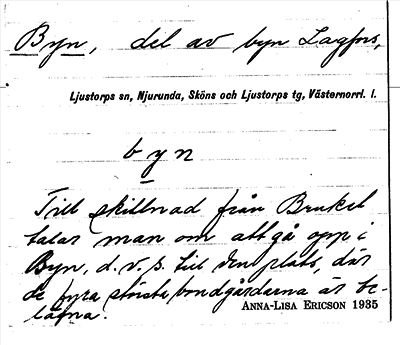 Byn, del av byn Lagfors,
Ljustorps sn, Njurunda, Sköns och Ljustorps tg, Västernorrl. l.
byn
Till skillnad från Bruket
talar man om att gå opp i
Byn, d.v.s. till den plats, där
de fyra största bondgårdarna är be-
lägna.
ANNA-LISA ERICSON 1935